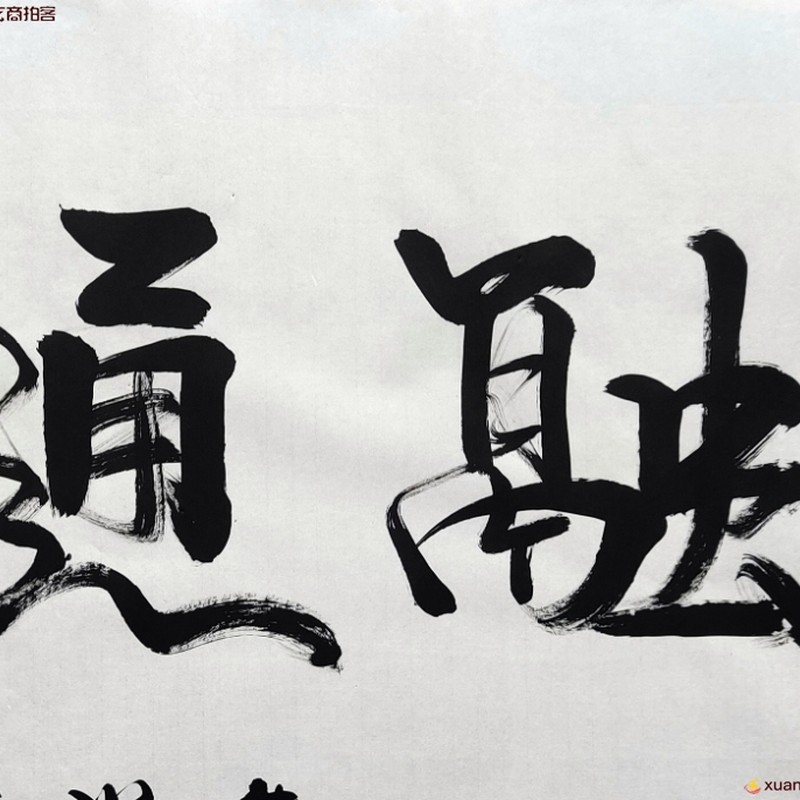 商拍客
融通
xuan